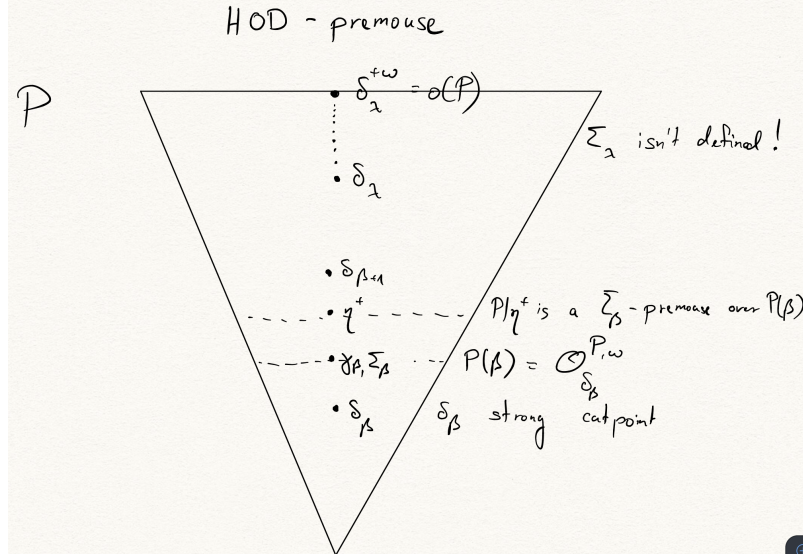 HOD - premouse
P
δ_λ^{+ω} = o(P)
Σ_λ isn't defined!
δ_λ
δ_{β+1}
η^+ P|η^+ is a Σ_β-premouse over P(β)
γ_β, Σ_β P(β) = O_{δ_β}^{P,ω}
δ_β δ_β strong cutpoint